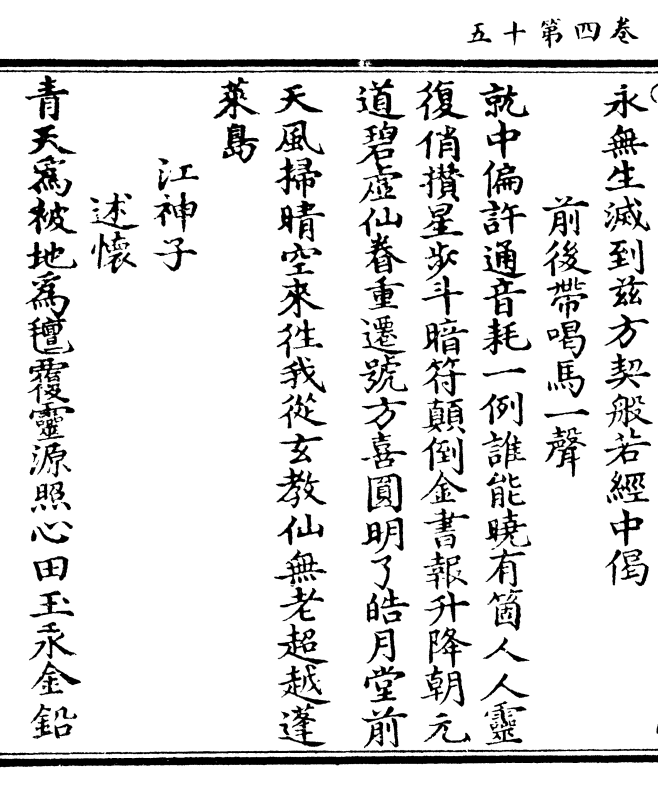 卷四第十五
永無生滅到兹方契般若經中偈
前後帶喝馬一聲
就中偏許通音耗一例誰能曉有箇人人靈
復俏攢星步斗暗符顛倒金書報升降朝元
道碧虛仙眷重遷號方喜圓明了皓月堂前
天風掃晴空來徃我從玄教仙無老超越蓬
萊島
江神子
述懷
青天爲被地爲氊覆靈源照心田玉汞金鉛